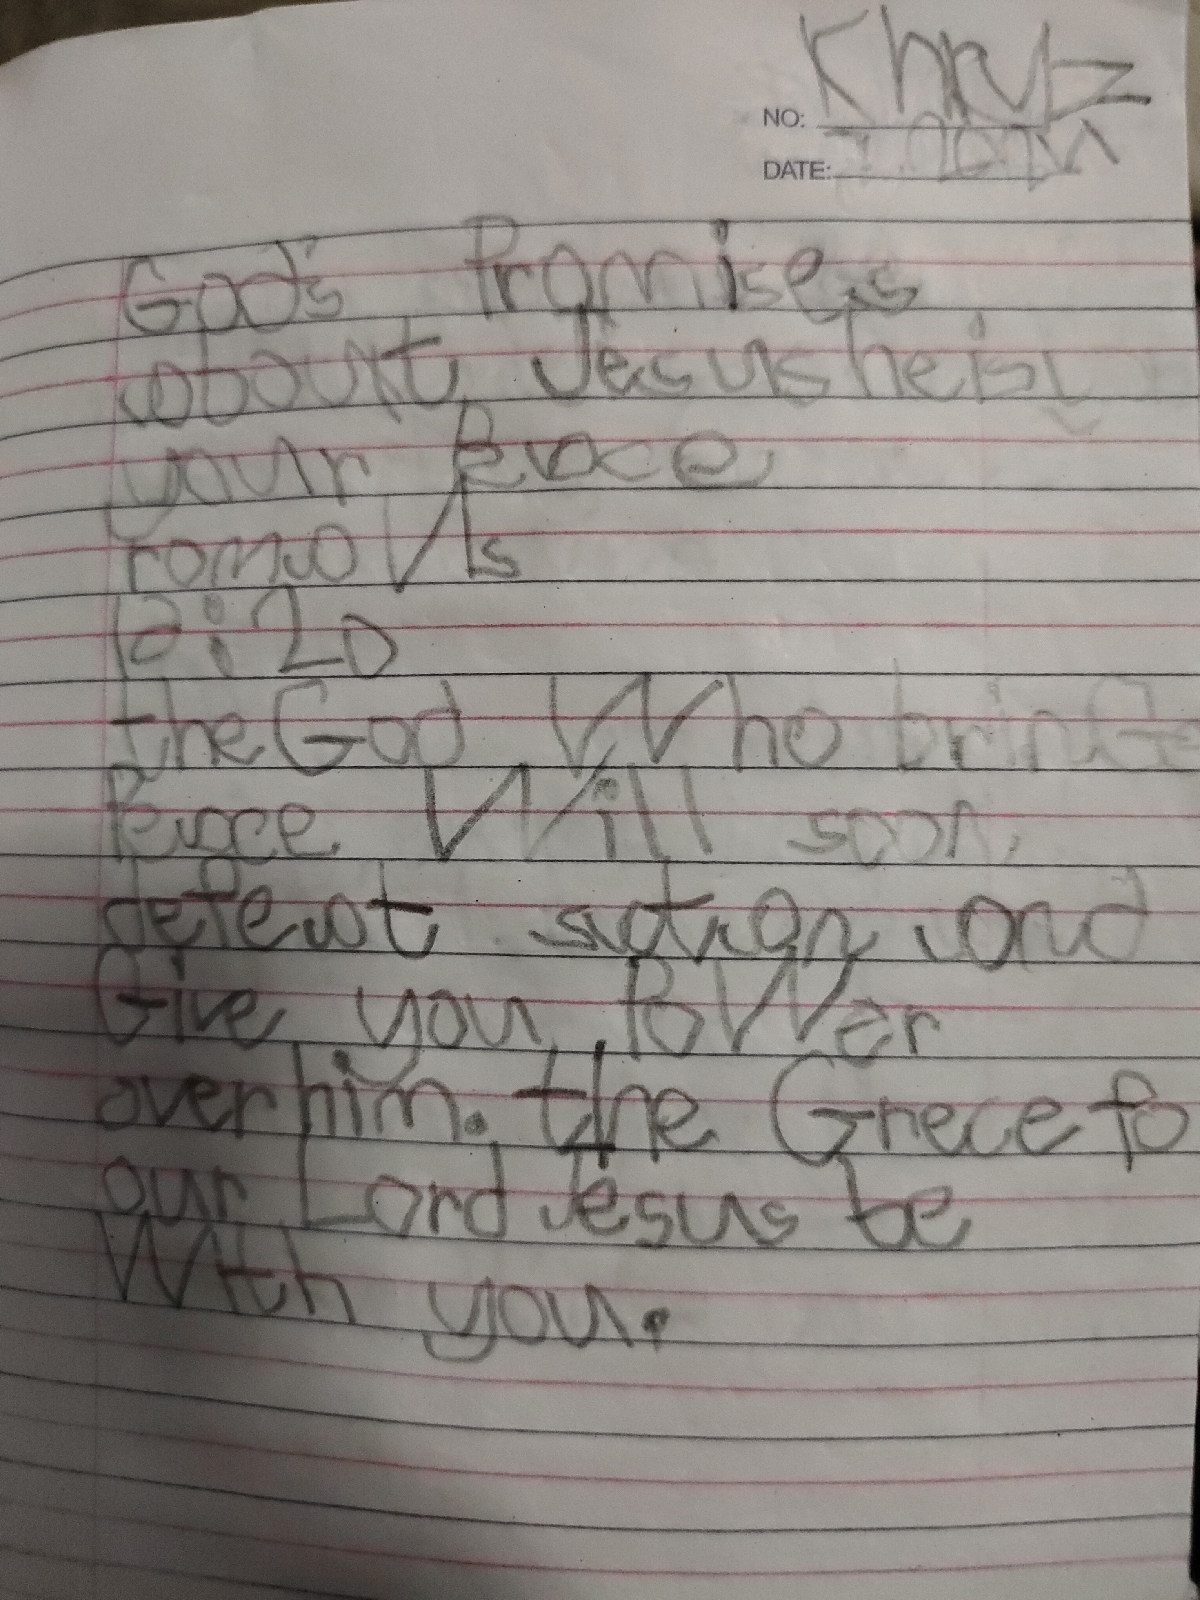 NO: Khryz
DATE:
God's Promises
about Jesus he is
your Peace
romans
12:20
the God Who bring
Peace Will soon
defeat satan and
Give you PoWer
over him. the Grece fo
our Lord Jesus be
With you.